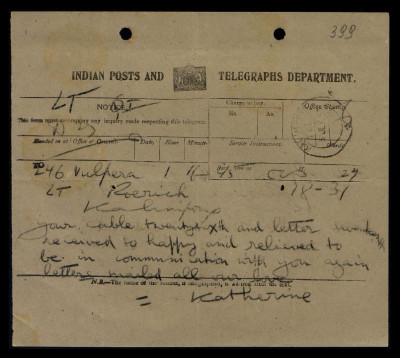 399
INDIAN POSTS AND TELEGRAPHS DEPARTMENT.
LT
NOTICE
This form must accompany any inquiry made respecting this telegram.
Charge to pay.
Rs. As.
Office Stamp
Handed in at (Office of Origin). Date. Hour. Minute. Service Instructions. Words.
TO
246 Vulpera 1
29
LT Roerich 18-31
Kalimpong
Your cable twentysixth and letter
received so happy and relieved to
be in communication with you again
letters mailed all our love
N.B.—The name of the Sender, if telegraphed, is
= Katherine